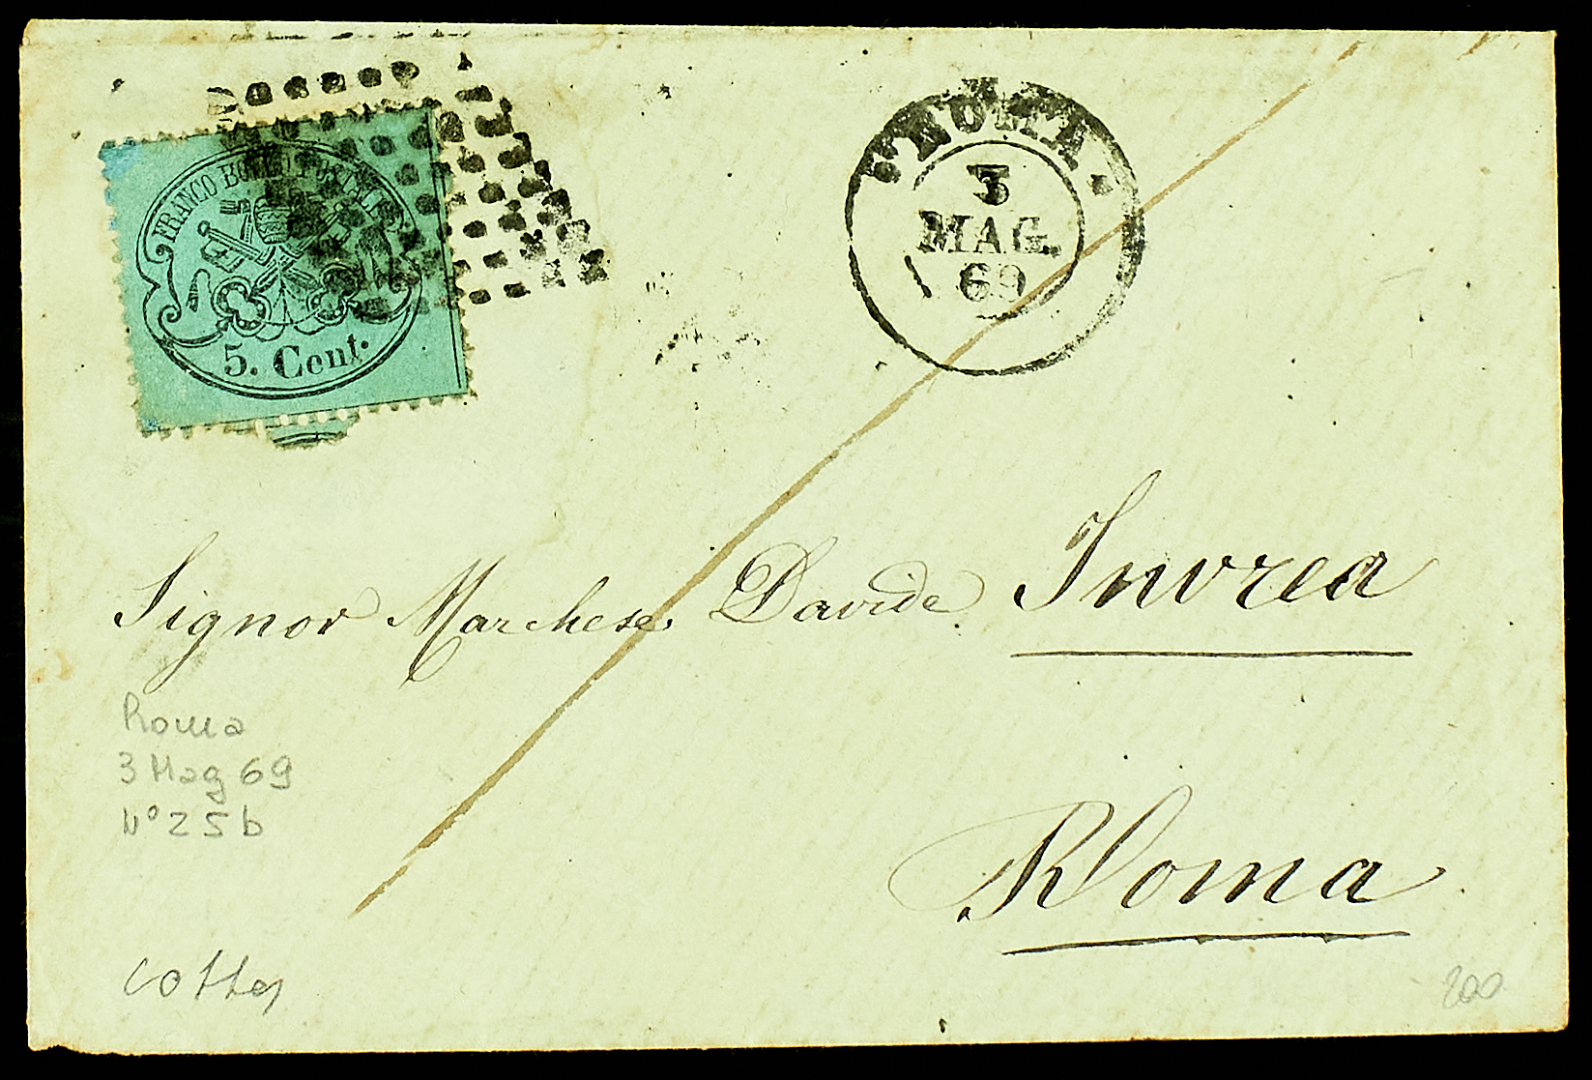 FRANCO BOLLO POSTALE
5. Cent.
ROMA
3
MAG.
69
Signor Marchese Davide Invrea
Roma
Roma
3 Mag 69
N° 25b
200